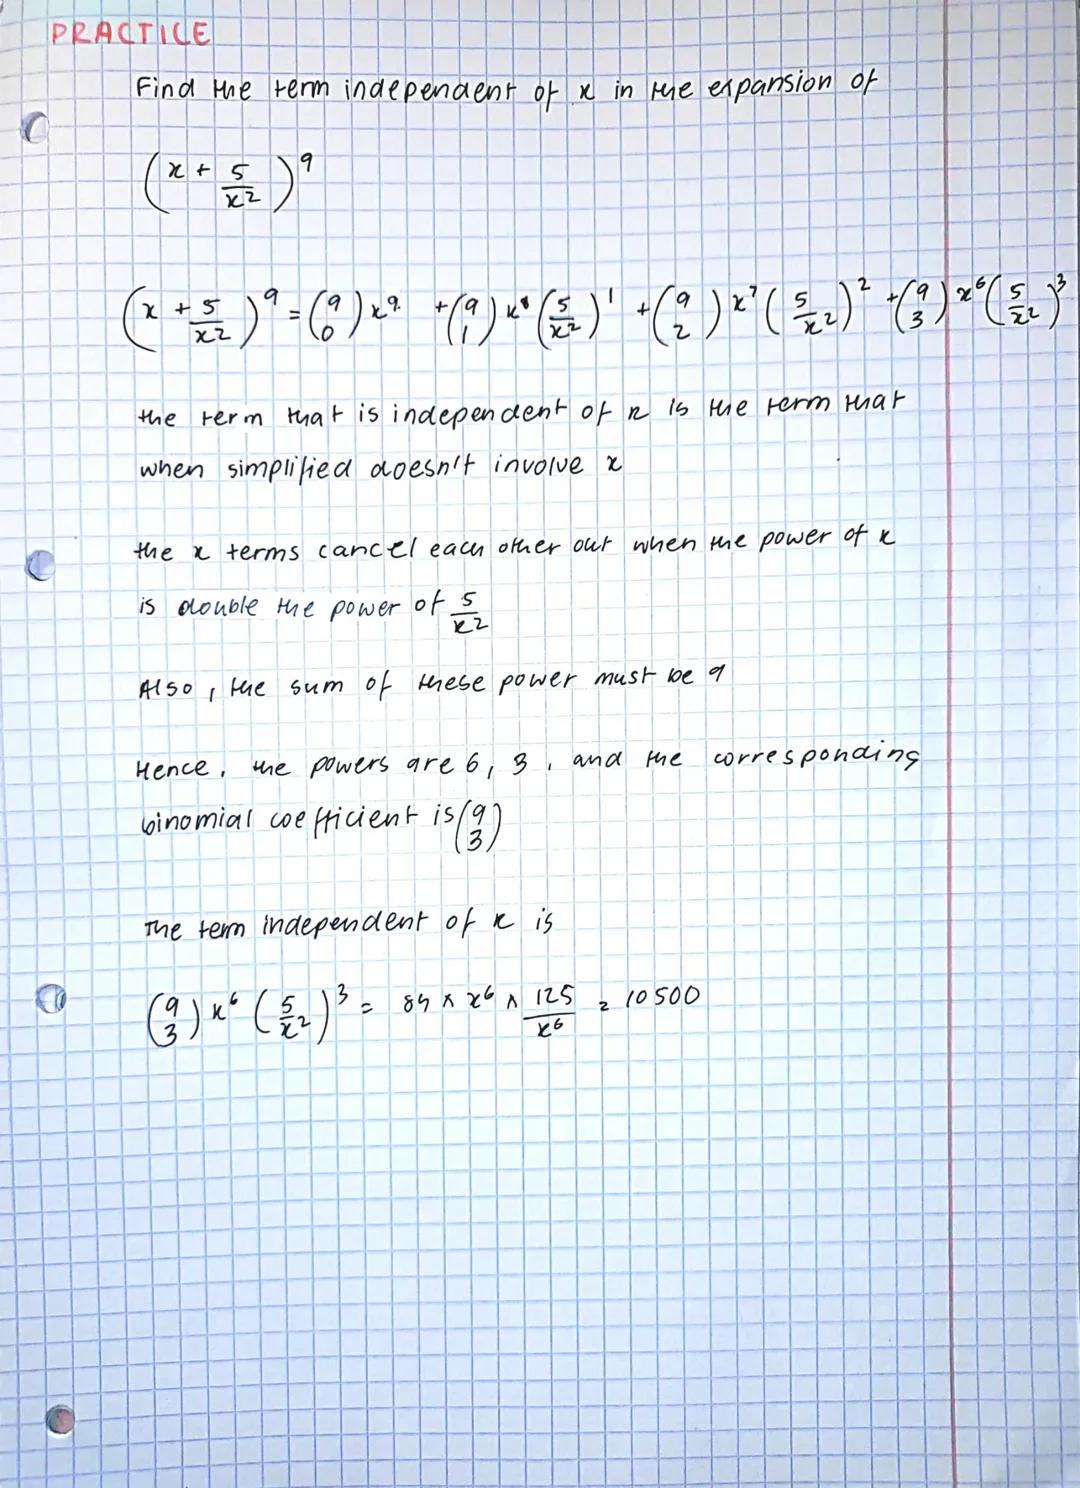 PRACTICE
Find the term independent of x in the expansion of
(x + 5/x²)⁹
(x + 5/x²)⁹ = (9 0) x⁹ + (9 1) x⁸ (5/x²)¹ + (9 2) x⁷ (5/x²)² + (9 3) x⁶ (5/x²)³
the term that is independent of x is the term that
when simplified doesn't involve x
the x terms cancel each other out when the power of x
is double the power of 5/x²
Also, the sum of these power must be 9
Hence, the powers are 6, 3, and the corresponding
binomial coefficient is (9 3)
The term independent of x is
(9 3) x⁶ (5/x²)³ = 84 × x⁶ × 125/x⁶ = 10500